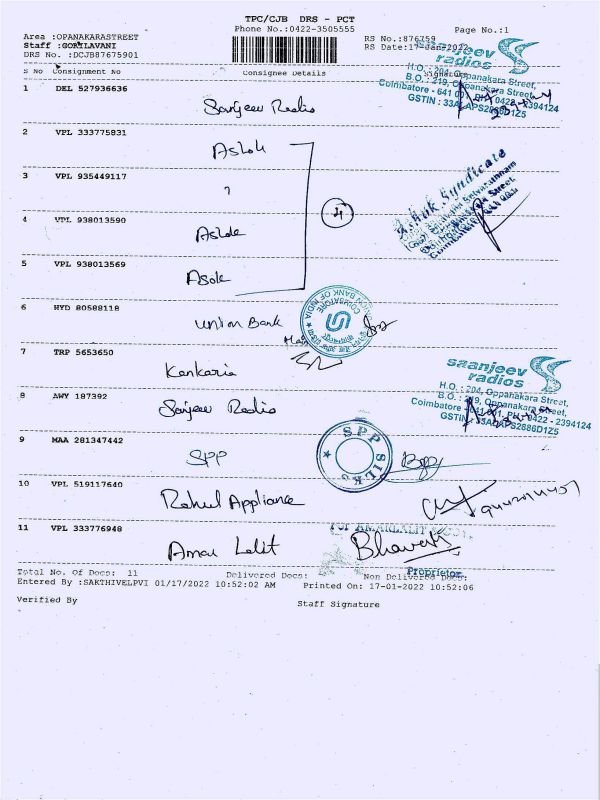 TPC/CJB DRS - PCT
Phone No.:0422-3505555
Page No.:1
Area :OPANAKARASTREET
RS No.:876759
Staff :GOKILAVANI
RS Date:17-Jan-2022
DRS No. :DCJB87675901
S No Consignment No Consignee Details Signature
saanjeev
radios
H.O. : 204, Oppanakara Street,
B.O. : 219, Oppanakara Street,
Coimbatore - 641 001, PH : 0422 - 2394124
1 DEL 527936636
Sanjeev Radio
2 VPL 333775831
Ashok
3 VPL 935449117
"
4
Ashok Syndicate
4 VPL 938013590
Ashok
5 VPL 938013569
Asok
6 HYD 80588118
Union Bank
UNION BANK OF INDIA
COIMBATORE
7 TRP 5653650
Kankaria
saanjeev
radios
H.O. : 204, Oppanakara Street,
B.O. : 219, Oppanakara Street,
Coimbatore - 641 001, PH : 0422 - 2394124
8 AWY 187392
Sanjeev Radio
9 MAA 281347442
SPP
SPP SILKS
10 VPL 519117640
Rahul Appliance
11 VPL 333776948
Amar Lalit
For AMARLALIT
Bhavesh
Proprietor
Total No. Of Docs: 11 Delivered Docs: Non Delivered Docs:
Entered By :SAKTHIVELPVI 01/17/2022 10:52:02 AM Printed On: 17-01-2022 10:52:06
Verified By Staff Signature